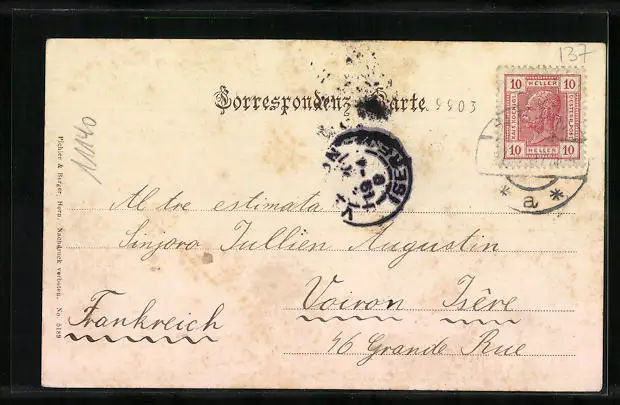 137
Correspondenz-Karte.
9903
10 HELLER 10
KAIS. KOENIGL.
OESTERR. POST
10 HELLER 10
* a *
11140
ISERE
Al tre estimata
Sinjoro Jullien Augustin
Voiron Isère
Frankreich
46 Grande Rue
Pichler & Berger, Horn. Nachdruck verboten. No. 5189